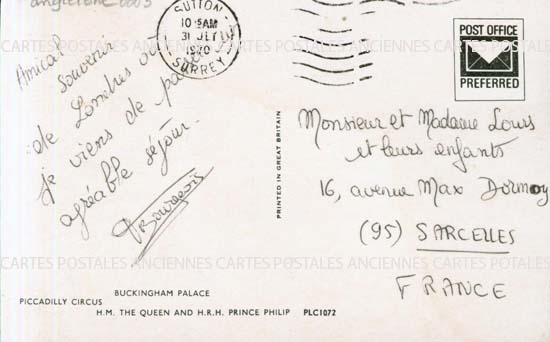 angleterre 0003
SUTTON
10-15AM
31 JLY
1970
SURREY
POST OFFICE
PREFERRED
Amical souvenir
de Londres où
je viens de passer un
agréable séjour.
Bourgeois
Monsieur et Madame Louis
et leurs enfants
16, avenue Max Dormoy
(95) SARCELLES
FRANCE
PRINTED IN GREAT BRITAIN
CARTES POSTALES ANCIENNES CARTES POSTALES ANCIENNES CARTES POSTALES
CARTES POSTALES ANCIENNES CARTES POSTALES ANCIENNES CARTES POSTALES
BUCKINGHAM PALACE
PICCADILLY CIRCUS
H.M. THE QUEEN AND H.R.H. PRINCE PHILIP PLC1072